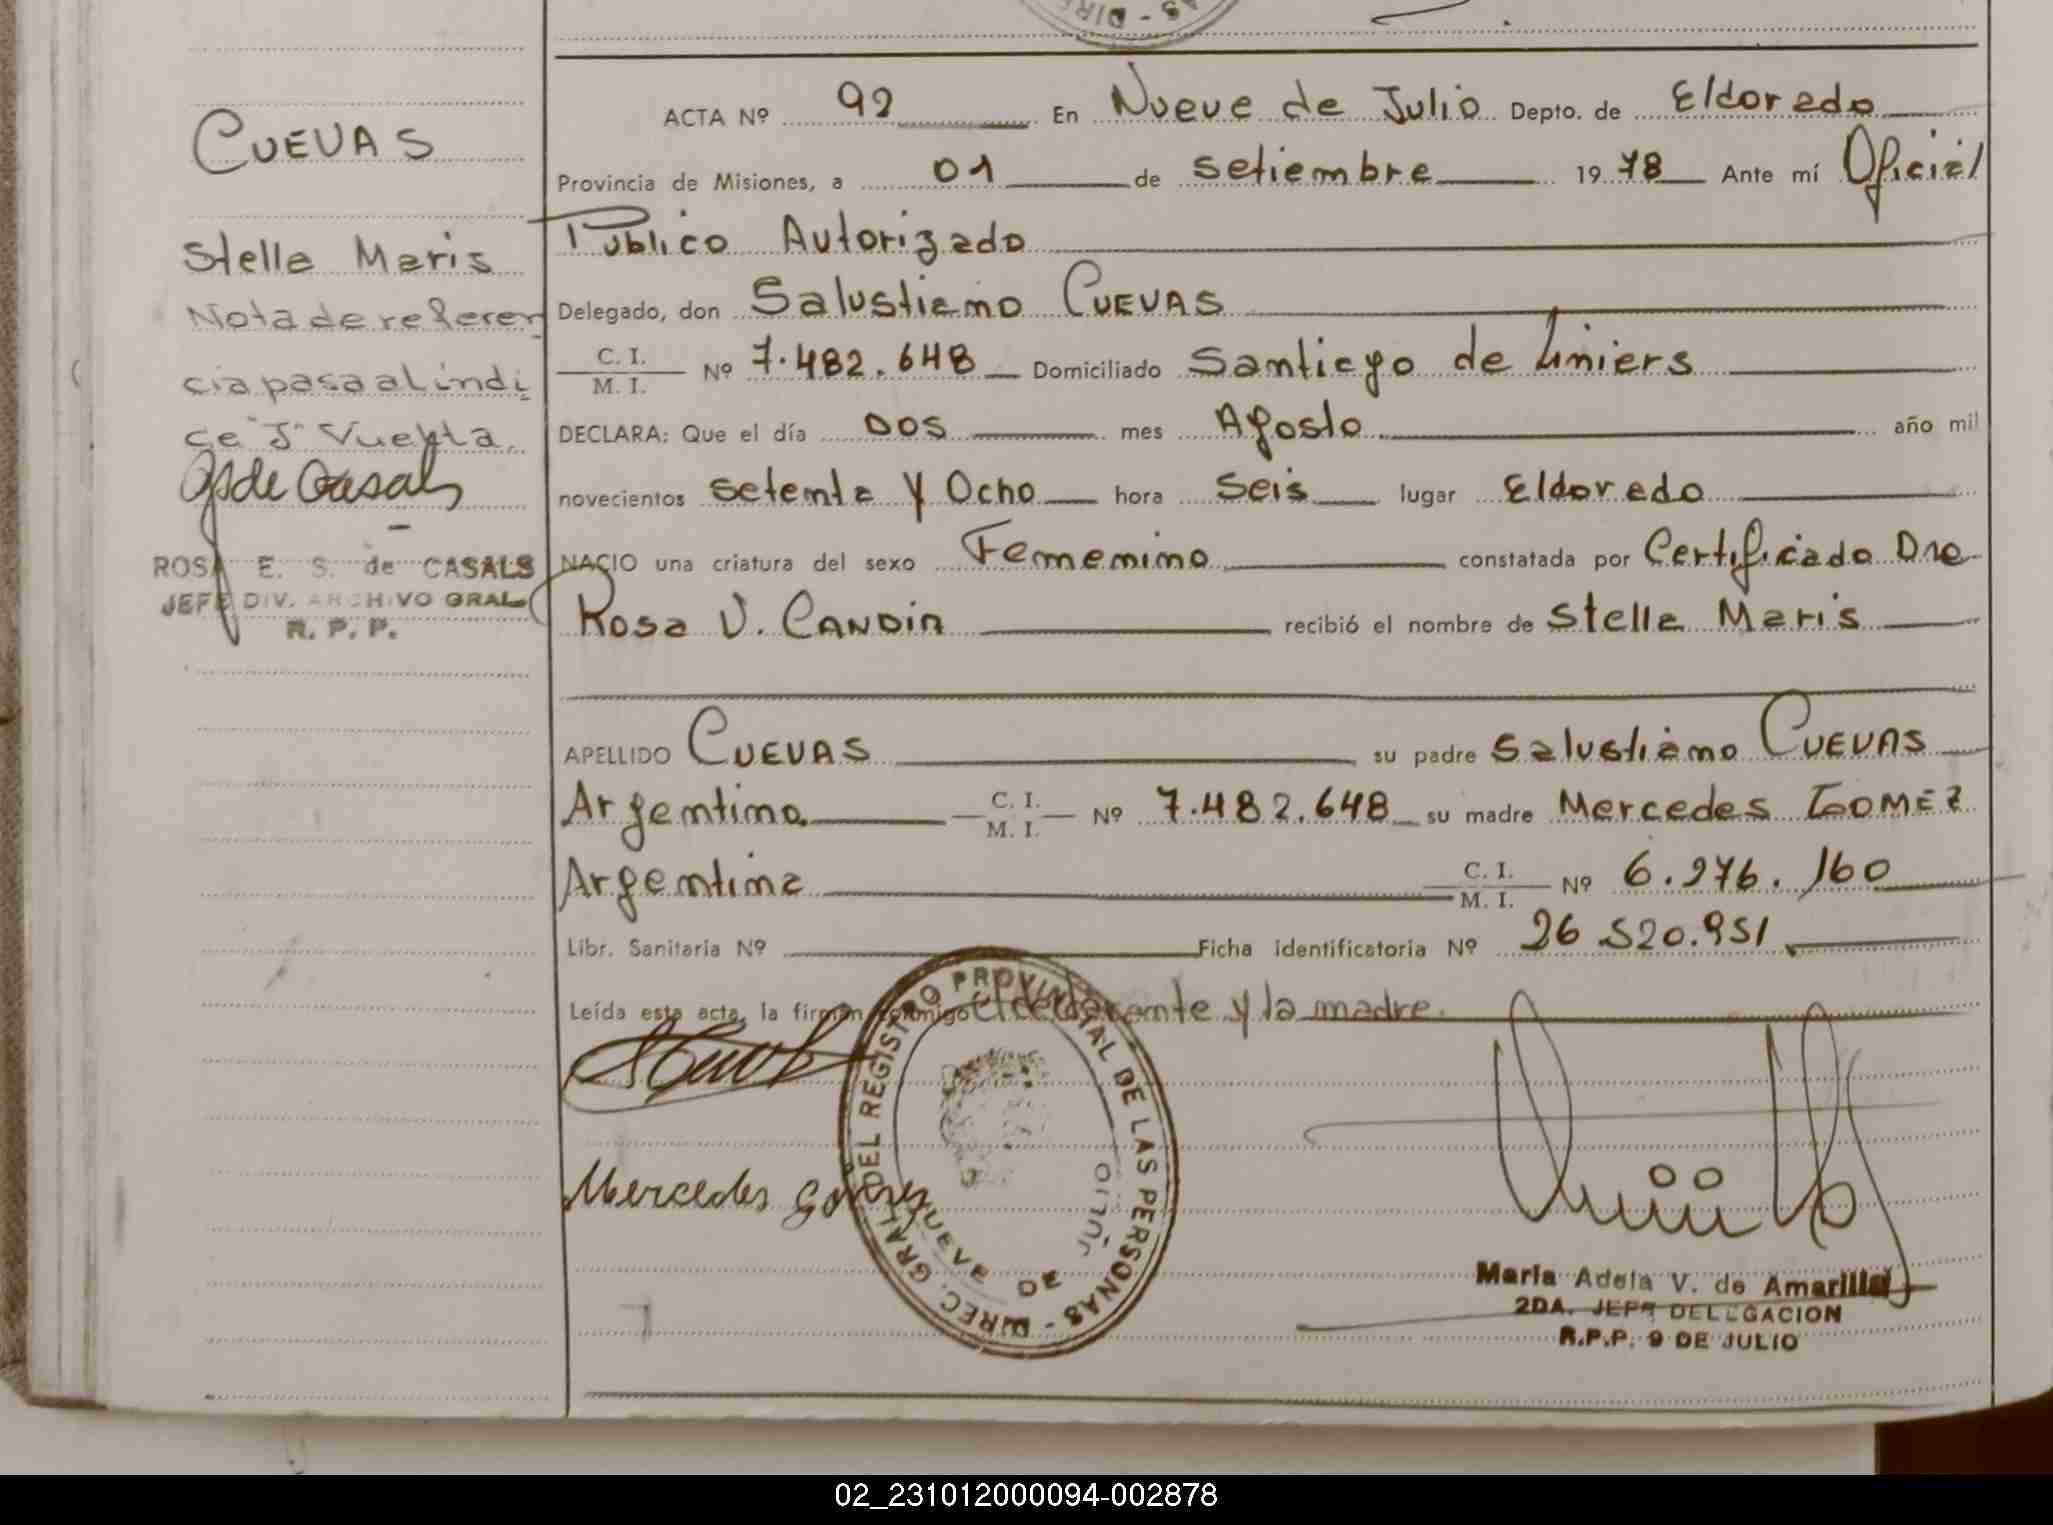 CUEVAS
Stella Maris
Nota de referen
cia pasa al indi
ce "J" Vuelta.
ROSA E. S. de CASALS
JEFE DIV. ARCHIVO GRAL
R. P. P.
ACTA Nº 92 En Nueve de Julio Depto. de Eldorado
Provincia de Misiones, a 01 de setiembre 1978 Ante mí Oficial
Publico Autorizado
Delegado, don Salustiano CUEVAS
C. I. / M. I. Nº 7.482.648 Domiciliado Santiago de Liniers
DECLARA: Que el día DOS mes Agosto año mil
novecientos setenta y Ocho hora seis lugar Eldorado
NACIO una criatura del sexo Femenino constatada por Certificado Dra
Rosa V. CANDIA recibió el nombre de Stella Maris
APELLIDO CUEVAS su padre Salustiano CUEVAS
Argentino C. I. / M. I. Nº 7.482.648 su madre Mercedes GOMEZ
Argentina C. I. / M. I. Nº 6.276.160
Libr. Sanitaria Nº Ficha identificatoria Nº 26.520.951
Leída esta acta, la firman conmigo el declarante y la madre.
Mercedes Gomez
DIREC. GRAL. DEL REGISTRO PROVINCIAL DE LAS PERSONAS -
NUEVE DE JULIO
Maria Adela V. de Amarilla
2DA. JEFA DELEGACION
R.P.P. 9 DE JULIO
02_231012000094-002878